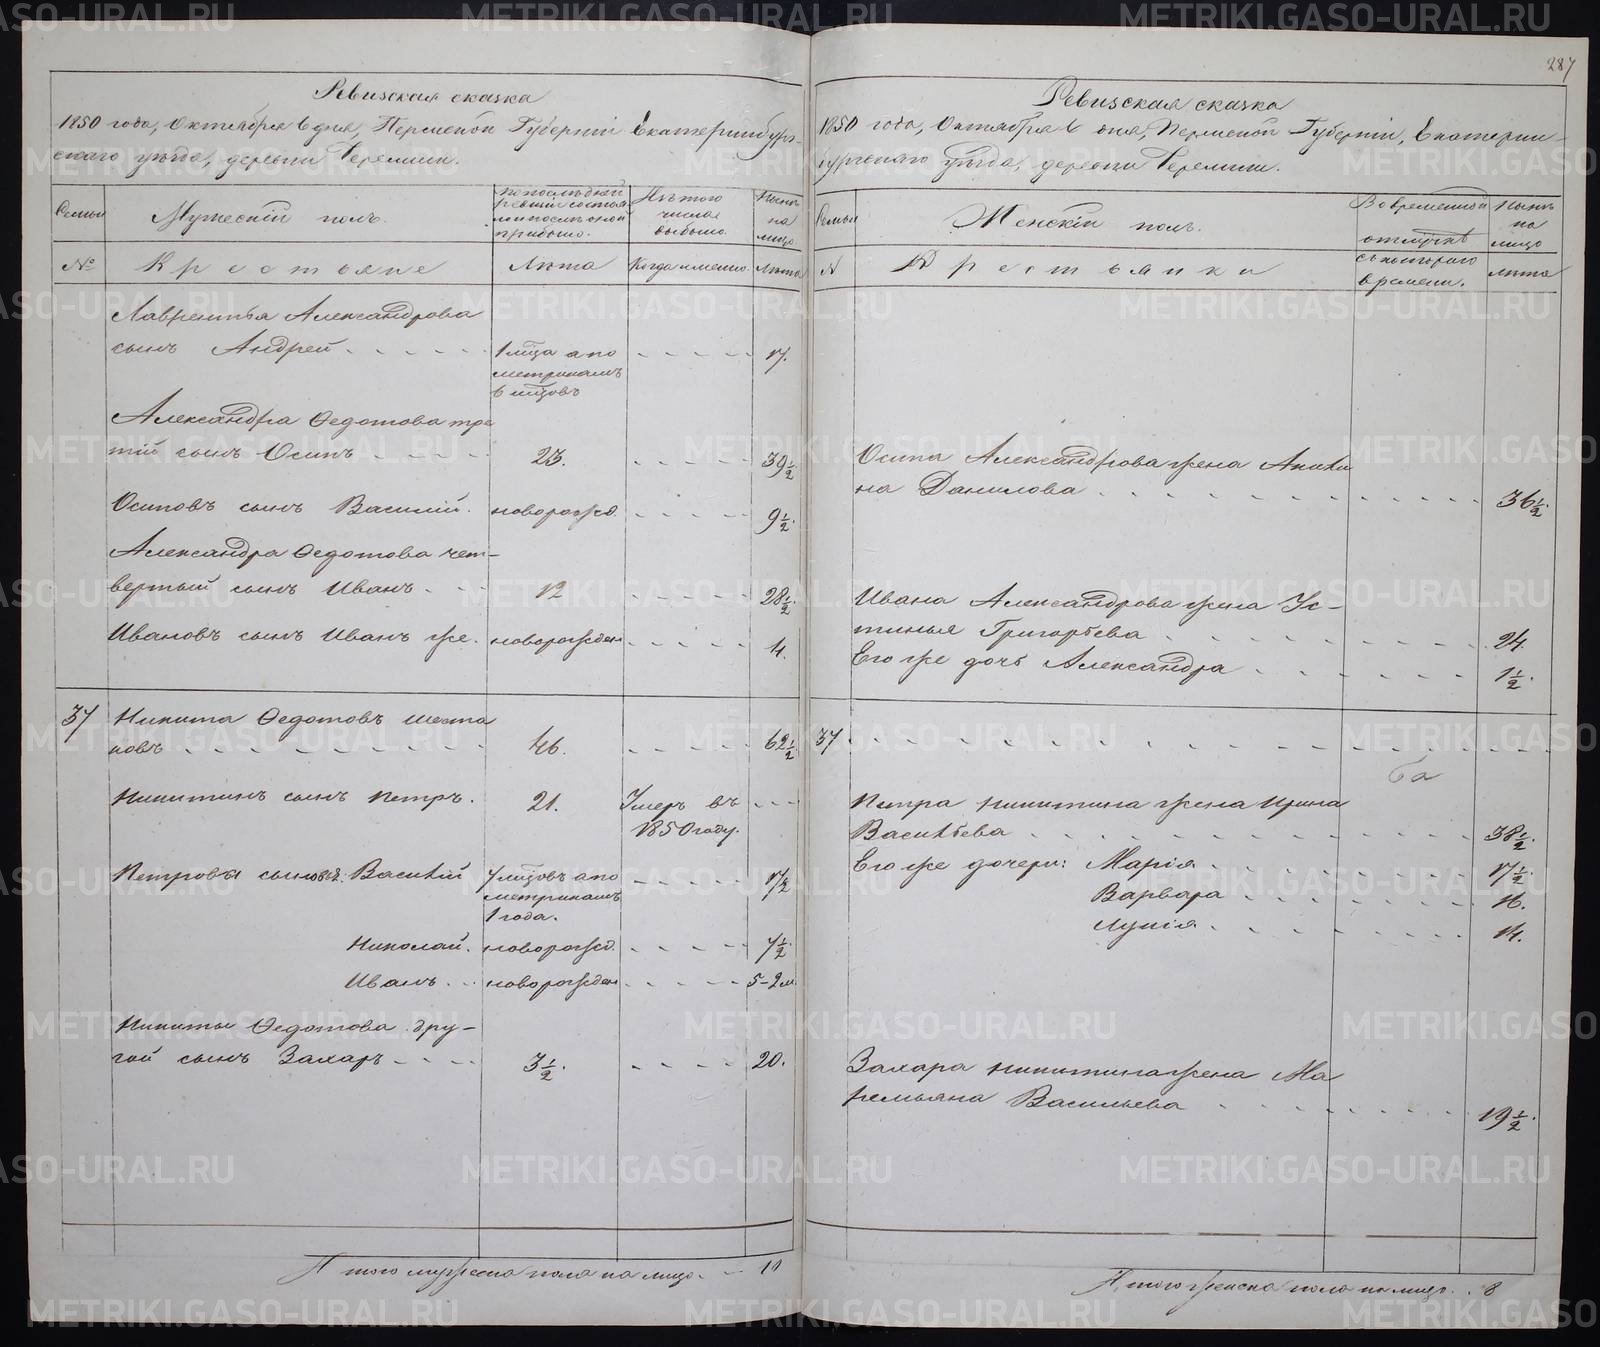 287
Ревизская сказка
1850 года, Октября 6 дня, Пермской Губерніи Екатеринбург-
скаго уѣзда, деревни Еремины.
Семьи
Мужескій полъ.
По послѣдней
ревизіи состоя
ло и послѣ оной
прибыло.
Изъ того
числа
выбыло.
Нынѣ
на
лицо.
№
Крестьяне
Лѣта
Когда именно.
Лѣта
Лаврентья Александрова
сынъ Андрей
1 мѣца а по
метрикамъ
6 мѣцовъ
17.
Александра Ѳедотова тре
тій сынъ Осипъ
23.
39½
Осиповъ сынъ Василій.
новорожд.
9½.
Александра Ѳедотова чет-
вертый сынъ Иванъ.
12
28½.
Ивановъ сынъ Иванъ же.
новорожден
4.
37
Никита Ѳедотовъ Шеста
ковъ
46.
62½
Никитинъ сынъ Петръ.
21.
Умеръ въ
1850 году.
Петровы сыновья: Василій
7 мѣцовъ а по
метрикамъ
1 года.
17½
Николай.
новорожд.
7½.
Иванъ.
новорожден
5-2 м.
Никиты Ѳедотова дру-
гой сынъ Захаръ
3½.
20.
Итого мужеска пола на лицо.
10
Ревизская сказка
1850 года, Октября 6 дня, Пермской Губерніи, Екатерин-
бургскаго уѣзда, деревни Еремины.
Семьи
Женскій полъ.
Во временной
отлучкѣ
Нынѣ
на
лицо
№
Крестьянки
съ котораго
времени.
лѣта
Осипа Александрова жена Акили
на Данилова
36½.
Ивана Александрова жена Ус-
тинья Григорьева
24.
Его же дочь Александра
1½.
37
Петра Никитина жена Ирина
Васильева
38½.
Его же дочери: Марія
17½.
Варвара
16.
Лукія
14.
Захара Никитина жена Ма
ремьяна Васильева
19½.
Итого женска пола на лицо.
8
METRIKI.GASO-URAL.RU